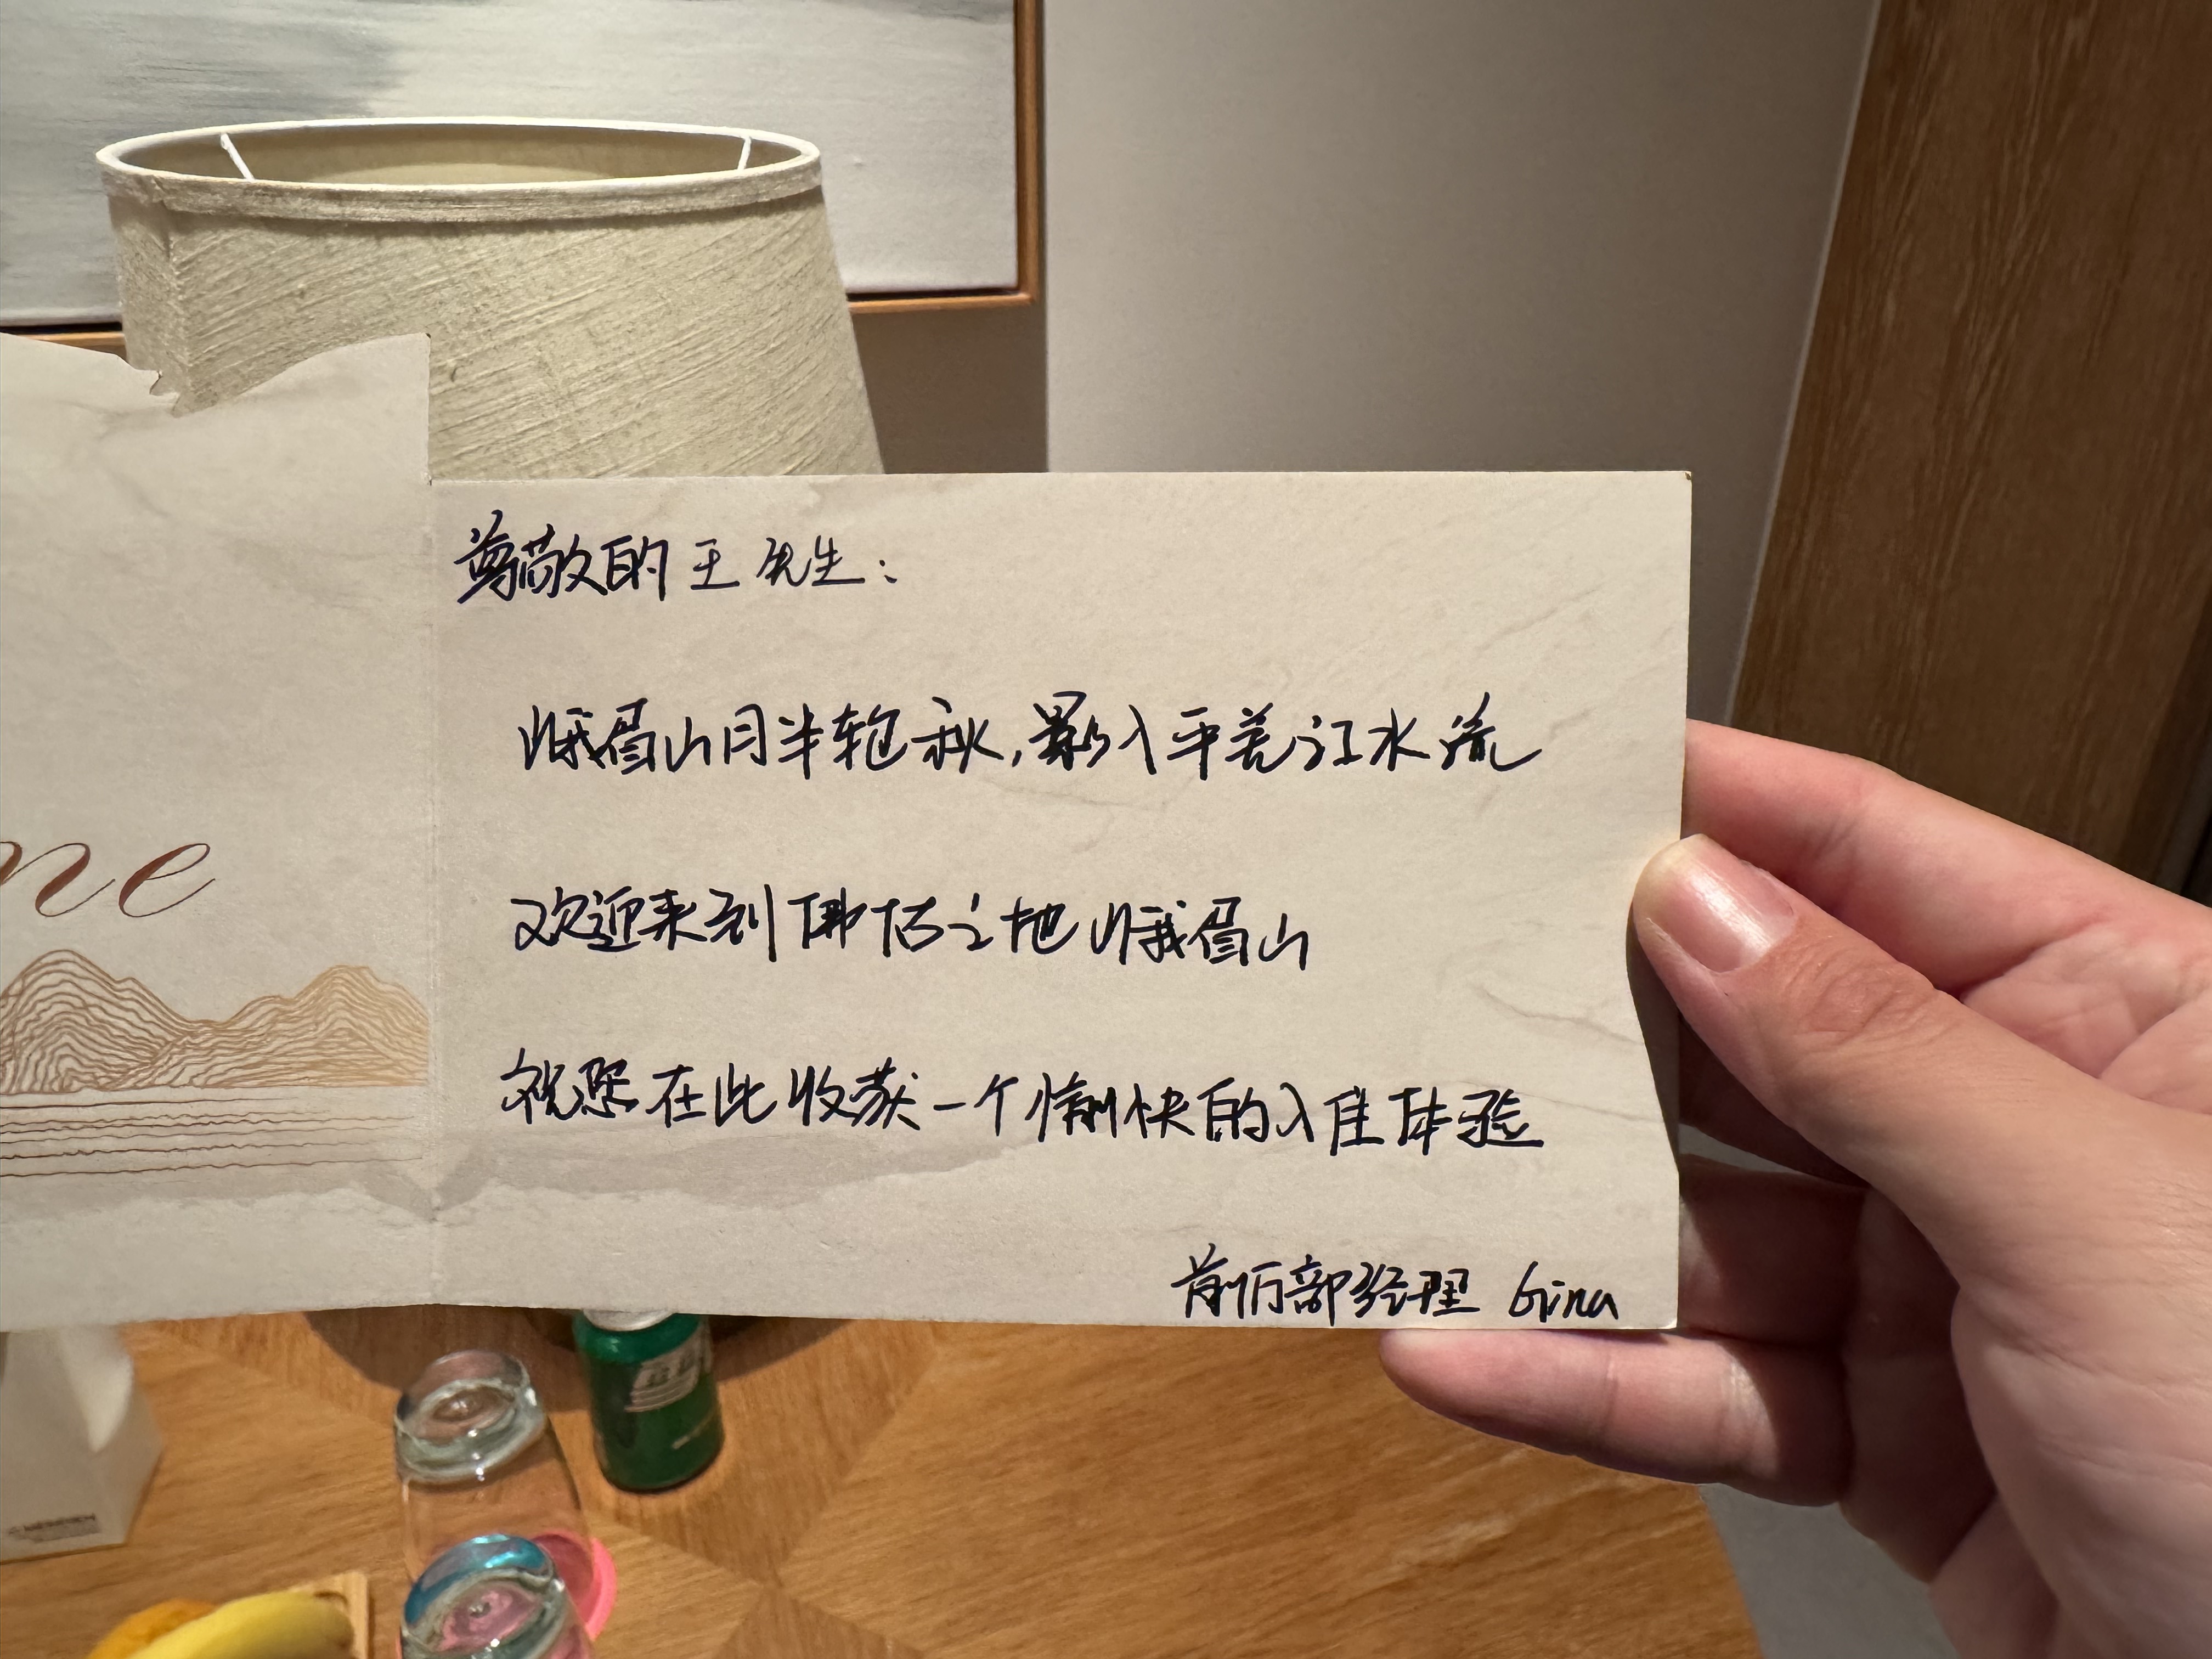 尊敬的王先生：
峨眉山月半轮秋，影入平羌江水流
欢迎来到佛佑之地峨眉山
ne
祝您在此收获一个愉快的入住体验
前厅部经理 Gina